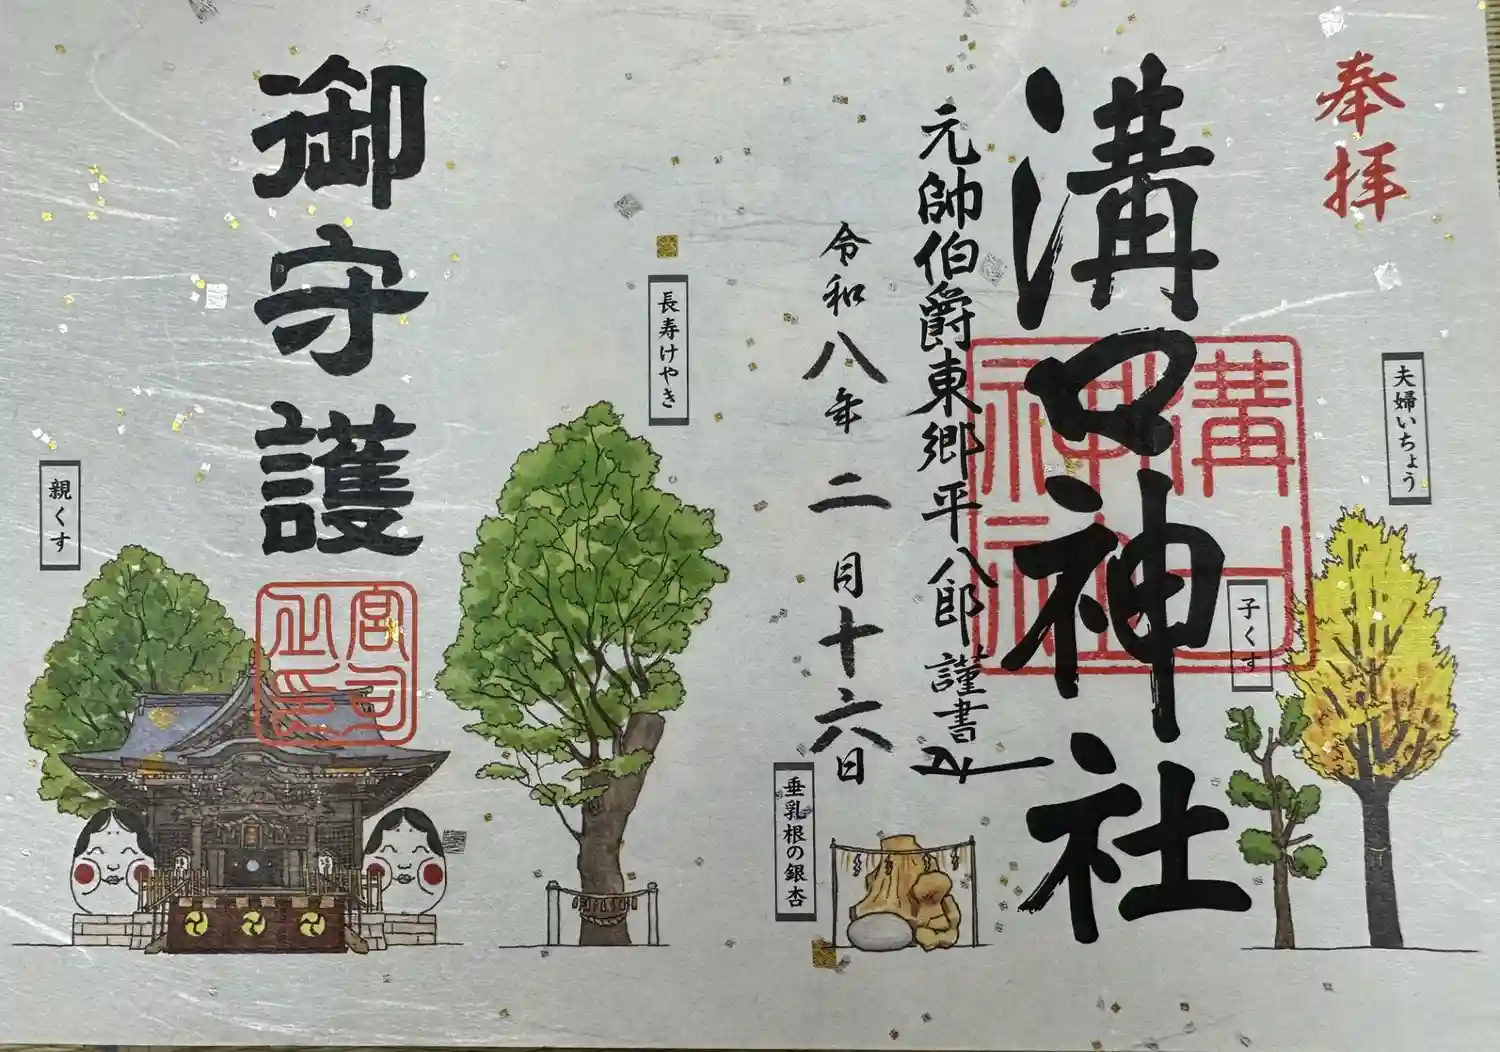 奉拝
夫婦いちょう
溝口神社
溝口
神社
子くす
元帥伯爵東郷平八郎謹書
令和八年二月十六日
垂乳根の銀杏
長寿けやき
御守護
宮司
親くす